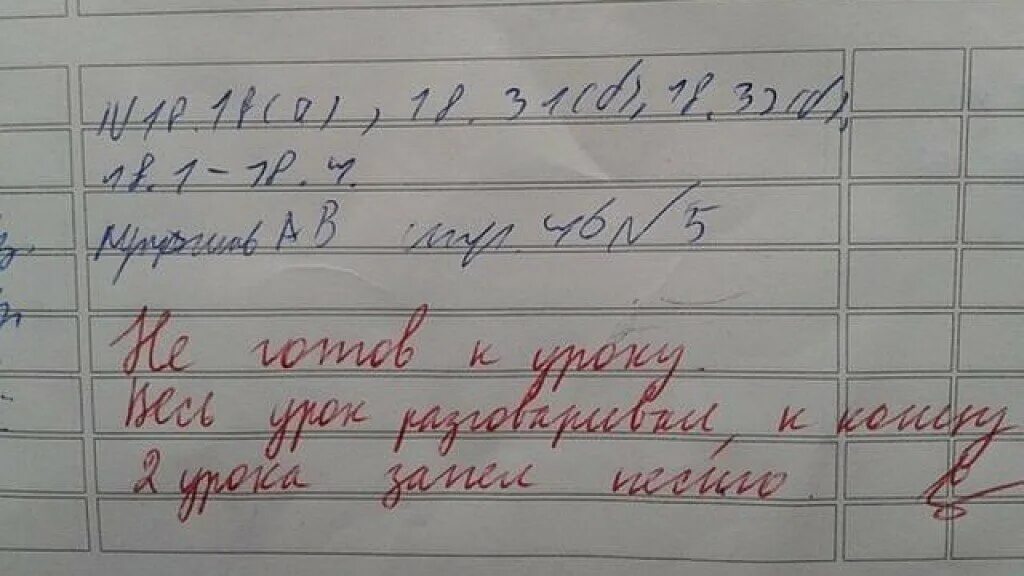 N18.18(а), 18.31(б), 18.32(б),
18.1-18.4.
А В стр. 46 N 5
Не готов к уроку.
Весь урок разговаривал, к концу
2 урока запел песню.